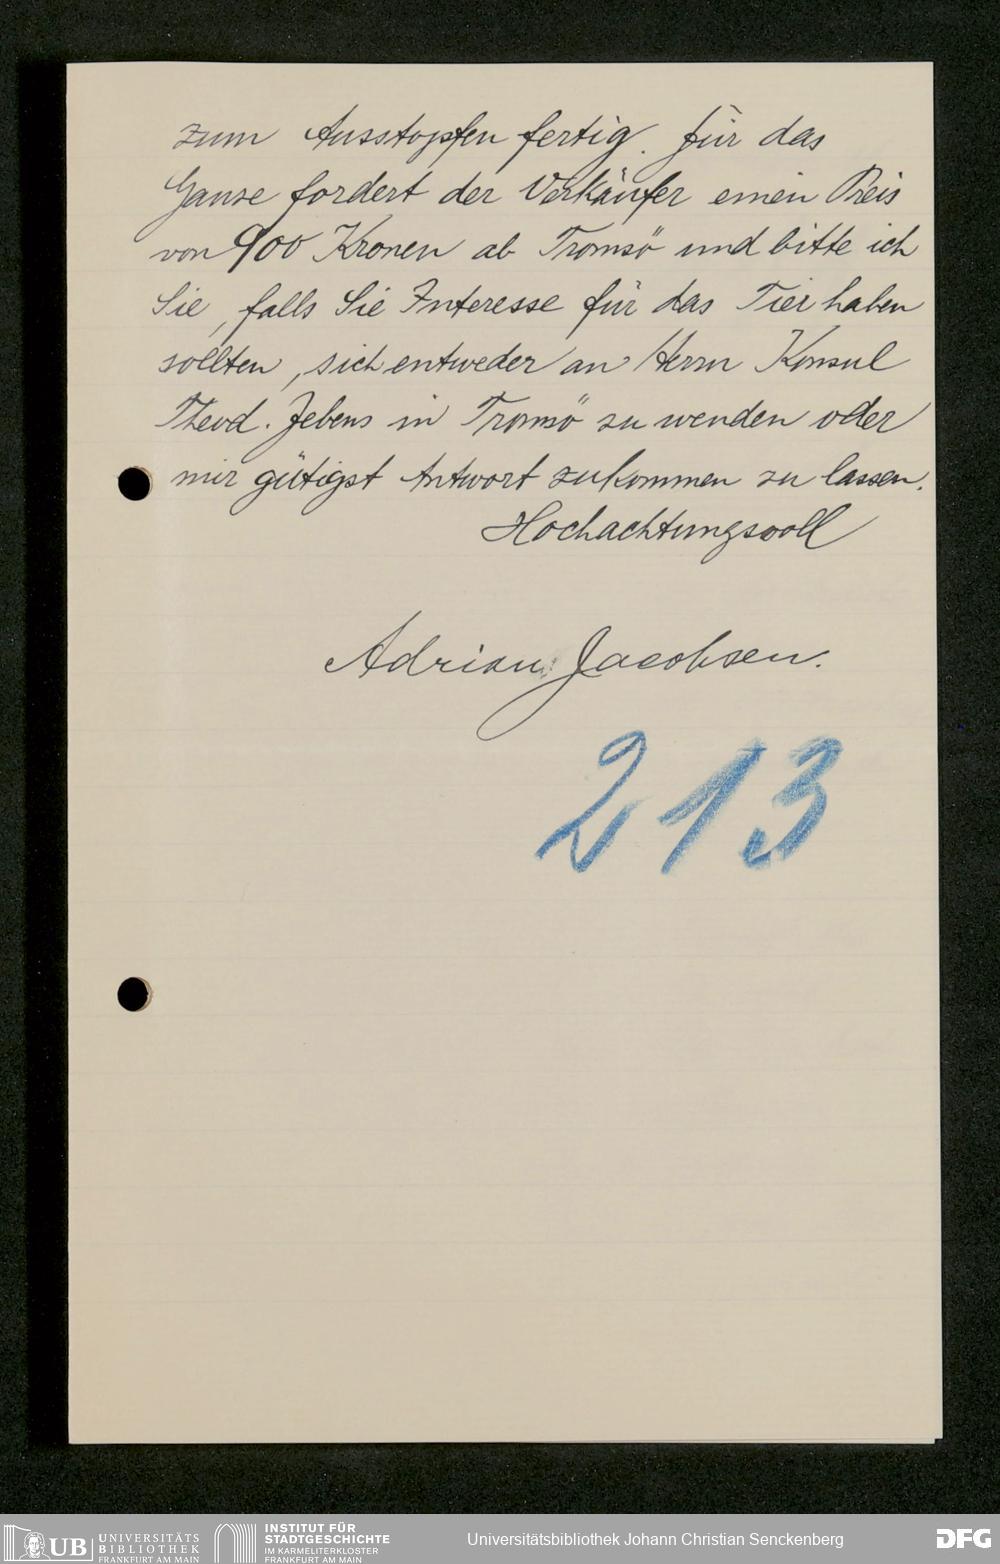 zum Ausstopfen fertig. für das
Ganze fordert der Verkäufer einen Preis
von 900 Kronen ab Tromsö und bitte ich
Sie, falls Sie Interesse für das Tier haben
sollten, sich entweder an Herrn Konsul
Theod. Jebens in Tromsö zu wenden oder
mir gütigst Antwort zukommen zu lassen.
Hochachtungsvoll
Adrian Jacobsen.
213
UB UNIVERSITÄTS
BIBLIOTHEK
FRANKFURT AM MAIN
INSTITUT FÜR
STADTGESCHICHTE
IM KARMELITERKLOSTER
FRANKFURT AM MAIN
Universitätsbibliothek Johann Christian Senckenberg
DFG